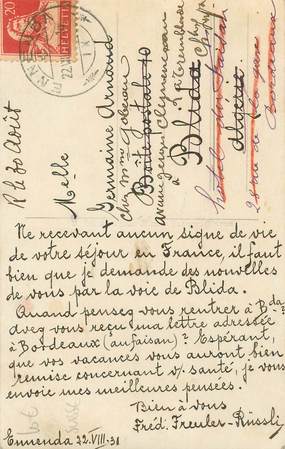 20
HELVETIA
ENNENDA
22.VIII
R le 30 Août
Melle
Germaine Arnaud
chez Mme Gobeau
Boite postale 10
avenue Georges Clemenceau
à
Blida
Algérie
Hôtel du Faisan
Bordeaux
Ne recevant aucun signe de vie
de votre séjour en France, il faut
bien que je demande des nouvelles
de vous par la voie de Blida.
Quand pensez vous rentrer à Bda?
avez vous reçu ma lettre adressée
à Bordeaux (au faisan)? Espérant,
que vos vacances vous auront bien
remise concernant v/ santé, je vous
envoie mes meilleures pensées.
Bien à vous
Fréd. Freuler-Rüssli
Ennenda 22.VIII.31